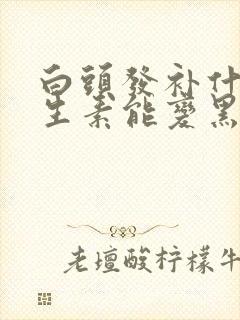 白頭發补什
生素能變黑
老壇酸柠檬牛